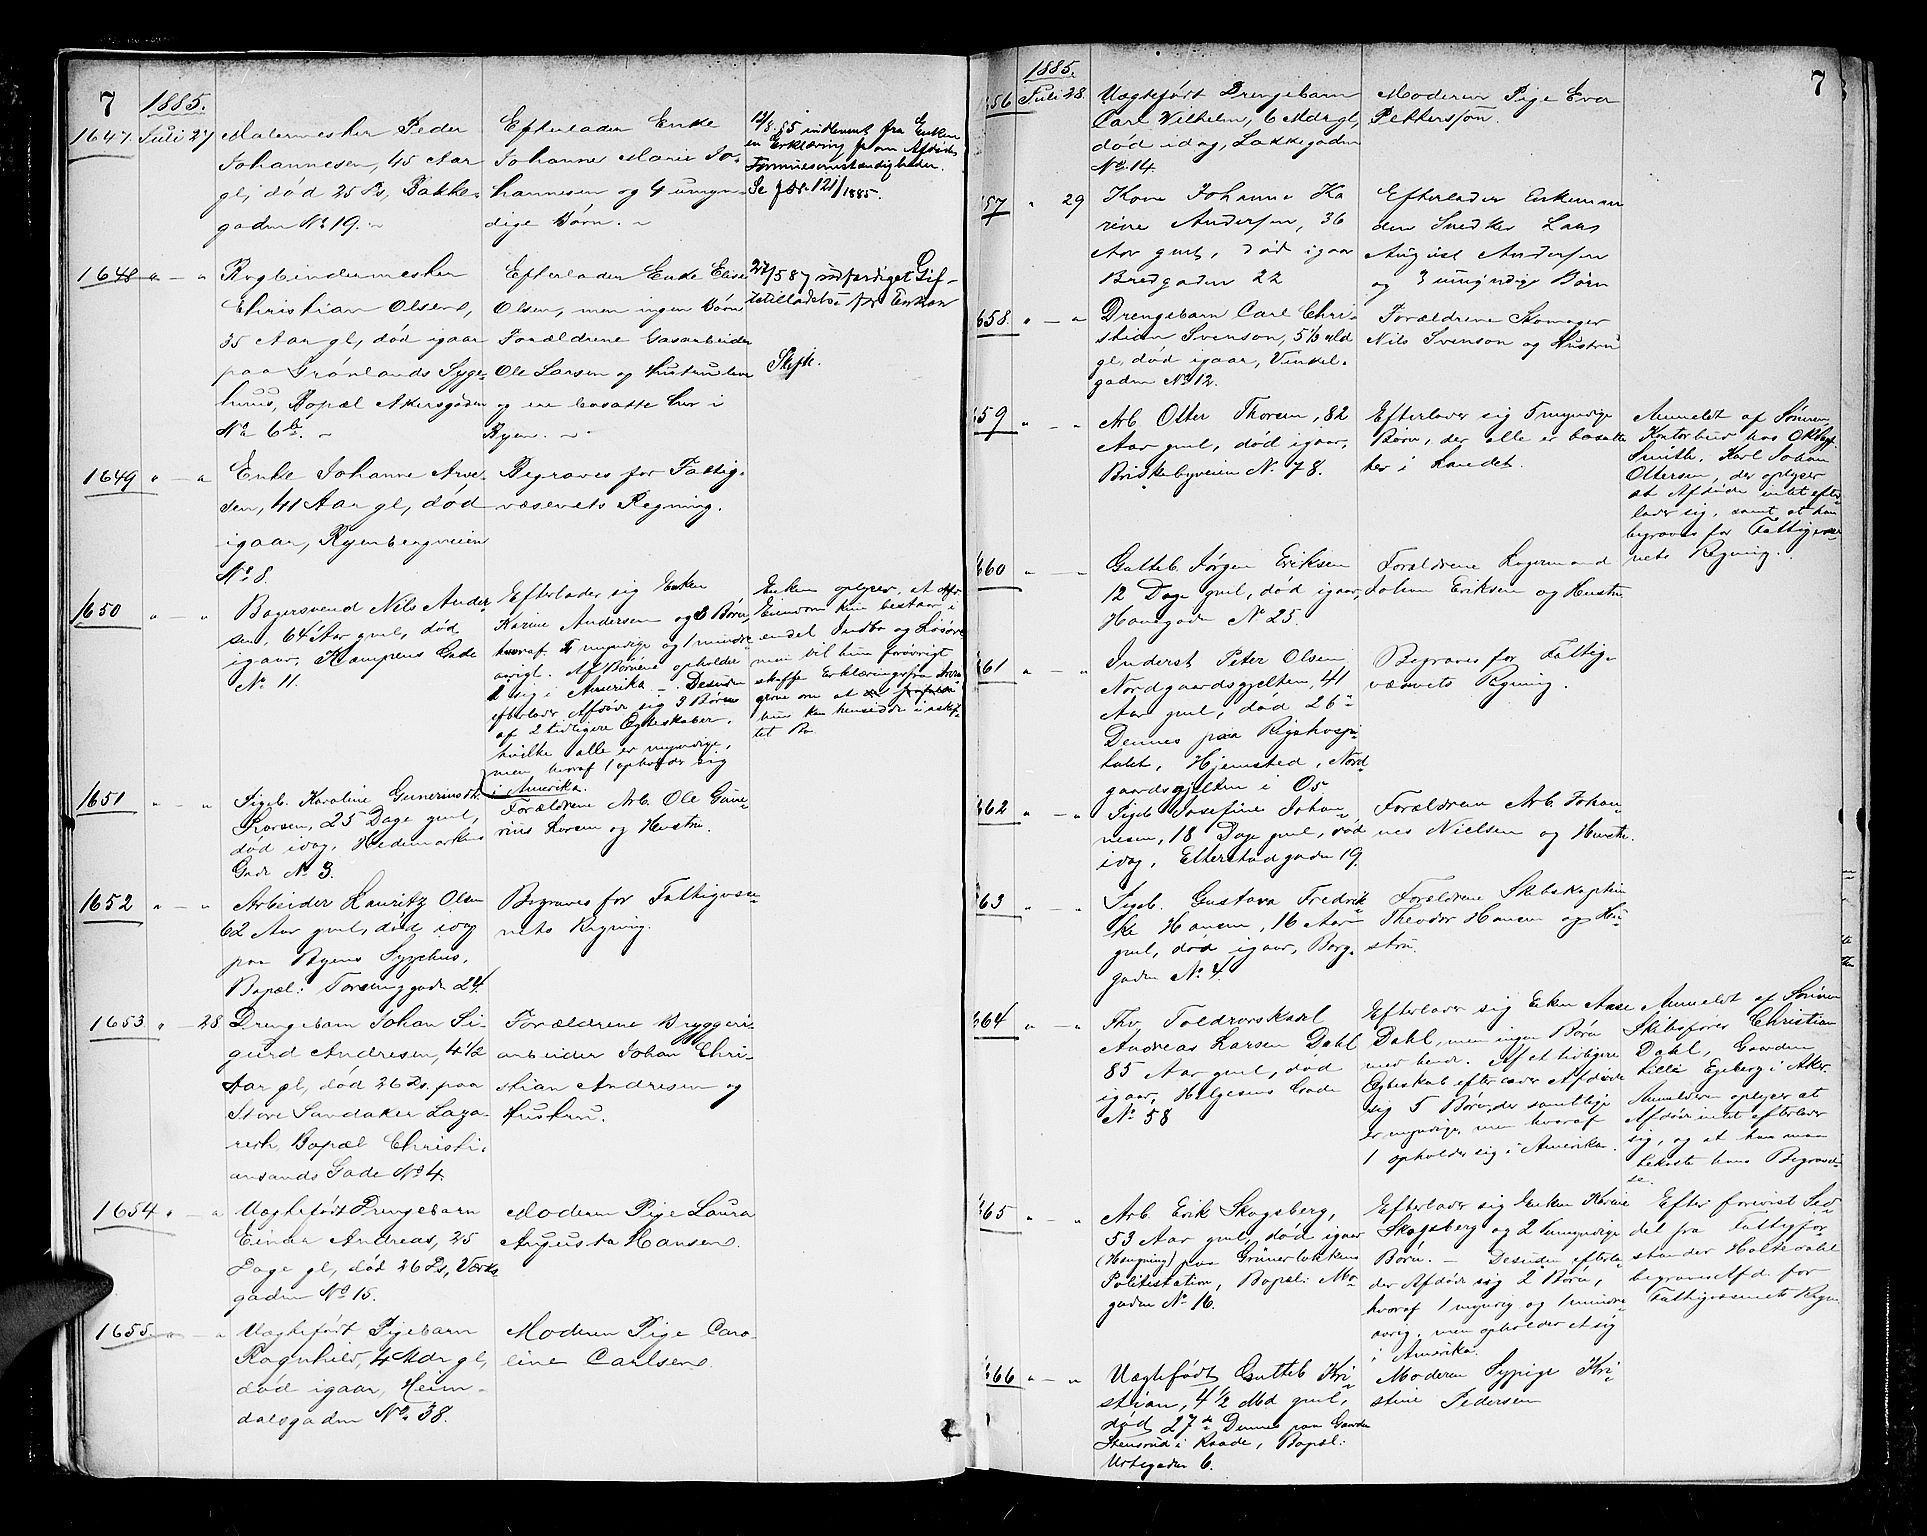 7
1885.
1647. Juli 27 Malermester Peder
Johannesen, 45 Aar
gl, død 25 Ds, Bakke-
gaden No 19.
Efterlader Enke
Johanne Marie Jo-
hannesen og 4 umyn-
dige Børn.
12/8 85 indkommet fra Enken
en Erklæring om Afdødes
Formuesomstændigheder.
Se Jr. 121/1885.
1648 " — "
Bogbindermester
Christian Olsen,
35 Aar gl, død igaar
paa Grønlands Syge-
huus, Bopæl Akersgaden
No 6 b.
Efterlader Enke Elise
Olsen, men ingen Børn
Forældrene Gasarbeider
Ole Larsen og Hustru leve
og ere bosatte her i
Byen.
27/5 87 udfærdiget Gif-
tetilladelse for Enken
Skifte.
1649 " — "
Enke Johanne Arve-
sen, 41 Aar gl, død
igaar, Ryenbergveien
No 8.
Begraves for Fattig-
væsenets Regning.
1650 " "
Bagersvend Nils Ander
sen, 64 Aar gml, død
igaar, Kampens Gade
No 11.
Efterlader sig Enken
Karine Andersen og 8 Børn,
hvoraf 7 myndige og 1 mindre-
aarigt. Af Børnene opholder
1 sig i Amerika. — Desuden
efterlader Afdøde sig 3 Børn
af 2 tidligere Egteskaber,
hvilke alle er myndige,
men hvoraf 1 opholder sig
i Amerika.
Enken oplyser, at Afd.
Eiendom kun bestaar i
endel Indbo og Løsøre
men vil hun forøvrigt
skaffe Erklæring fra Arvin-
gerne om at
hun kan hensidde i uskif-
tet Bo.
1651 " "
Pigeb. Karoline Gunerius dt.
Larsen, 25 Dage gml,
død idag, Hedemarkens
Gade No 3.
Forældrene Arb. Ole Gune-
rius Larsen og Hustru.
1652 " — "
Arbeider Lauritz Olsen
62 Aar gml, død idag
paa Byens Sygehus,
Bopæl: Torvinggade 24
Begraves for Fattigvæse-
nets Regning.
1653 " — 28
Drengebarn Johan Si-
gurd Andresen, 4 1/2
Aar gl, død 26 Ds. paa
Store Sandaker Laza-
reth, Bopæl Christi-
ansands Gade No 4.
Forældrene Bryggeri-
arbeider Johan Chri-
stian Andresen og
Hustru.
1654 " — "
Uægtefødt Drengebarn
Einar Andreas, 25
Dage gl, død 26 Ds, Værks-
gaden No 15.
Moderen Pige Laura
Augusta Hansen.
1655 " — "
Uægtefødt Pigebarn
Ragnhild, 4 Mdr gl,
død igaar, Heim-
dalsgaden No 38.
Moderen Pige Caro-
line Carlsen.
7
1885.
656 Juli 28.
Uægtefødt Drengebarn
Carl Vilhelm, 6 Mdr gl,
død idag, Lakkegaden
No 14.
Moderen Pige Eva
Petterson.
657 " 29
Kone Johanne Ka
rine Andersen, 36
Aar gml, død igaar
Bredgaden 22
Efterlader Enkeman
den Snedker Lars
August Andersen
og 3 umyndige Børn
658. " — "
Drengebarn Carl Chri-
stian Svenson, 5 1/2 Md
gl, død igaar, Vinkel-
gaden No 12.
Forældrene Skomager
Nils Svenson og Hustru
659 " — "
Arb Otter Thoresen, 82
Aar gml, død igaar,
Briskebyveien No 78.
Efterlader sig 5 myndige
Børn, der alle er bosatte
her i Landet.
Anmeldt af Sønnen,
Kontorbud hos
Smith, Karl Johan
Ottersen, der oplyser
at Afdøde intet efter-
lader sig, samt at han
begraves for Fattigvæse-
nets Regning.
660 " — "
Gutteb. Jørgen Eriksen
12 Dage gml, død igaar,
Hausgade No 25.
Forældrene Lagermand
Johan Eriksen og Hustru
661 " — "
Inderst Peter Olsen
Nordgaardsgjelten, 41
Aar gml, død 26de
Dennes paa Rigshospi-
talet, Hjemsted, Nord-
gaardsgjelten i Os
Begraves for Fattig-
væsenets Regning.
662 " — "
Pigeb. Josefine Johan-
nesen, 18 Dage gml, død
idag, Etterstadgaden 19.
Forældrene Arb. Johan-
nes Nielsen og Hustru.
663 " — "
Pigeb. Gustava Fredrik-
ke Hansen, 16 Aar
gml, død igaar, Borg-
gaden No 4
Forældrene Skibskaptein
Theodor Hansen og Hu-
stru.
664 " — "
Fhv. Toldrorskarl
Andreas Larsen Dahl
85 Aar gml, død
igaar, Helgesens Gade
No 58
Efterlader sig Enken Aase
Dahl, men ingen Børn
med hende. Af et tidligere
Egteskab efterlader Afdøde
sig 5 Børn, der samtlige
er myndige, men hvoraf
1 opholder sig i Amerika.
Anmeldt af Sønnen
Skibsfører Christian
Dahl, Gaarden
Lille Egeberg i Aker.
Anmelderen oplyser at
Afdøde intet efterlader
sig, og at han maa
bekoste hans Begravel-
se.
665 " — "
Arb. Erik Skogsberg,
53 Aar gml, død igaar
(Hængning) paa Grünerløkkens
Politistation, Bopæl: Mo-
gaden No 16.
Efterlader sig Enken Karine
Skogsberg og 2 umyndige
Børn. — Desuden efterla-
der Afdøde sig 2 Børn,
hvoraf 1 myndig og 1 mindre-
aarig, men opholder et sig
i Amerika.
Efter forevist Sed-
del fra Fattigfor-
stander Holtedahl
begraves Afd. for
Fattigvæsenets Regn.
666 " — "
Uægtefødt Gutteb Kri-
stian, 4 1/2 Md gml,
død 27de Dennes paa Gaarden
Stensrud i Raade, Bopæl:
Urtegaden 6.
Moderen Sypige Kri-
stine Pedersen